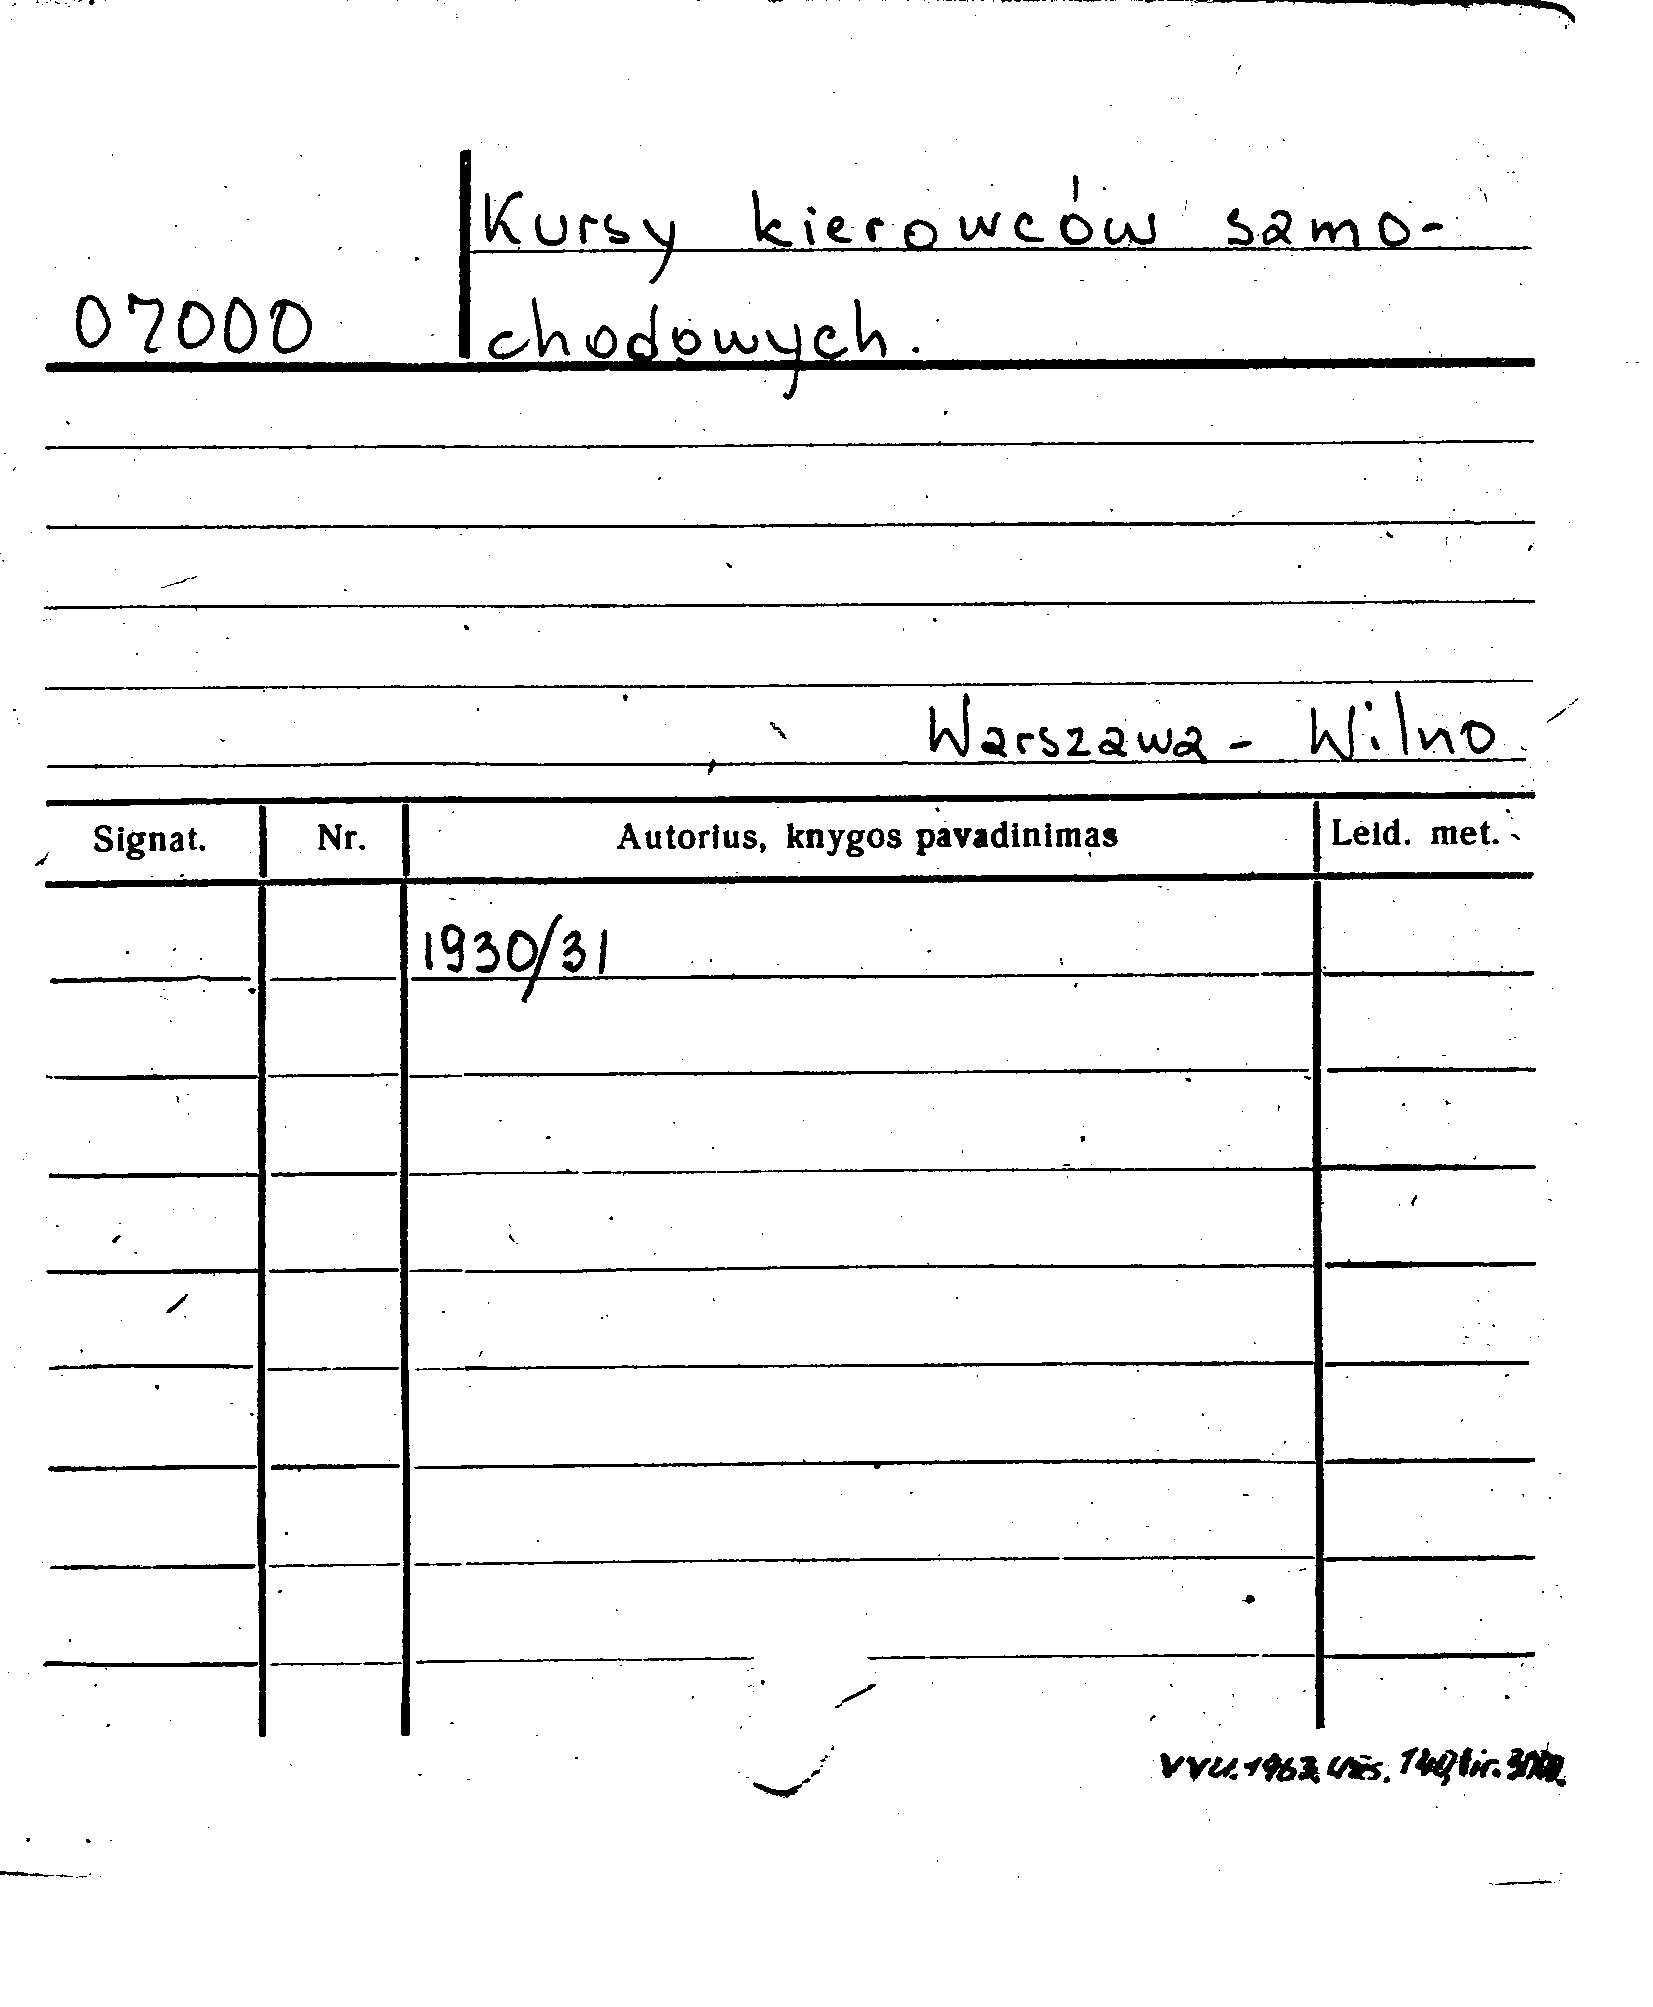 Kursy kierowców samo-
07000 chodowych.
Warszawa - Wilno
Signat. Nr. Autorius, knygos pavadinimas Leid. met.
1930/31
VVU. 1963. Užs. 140, tir. 3000.